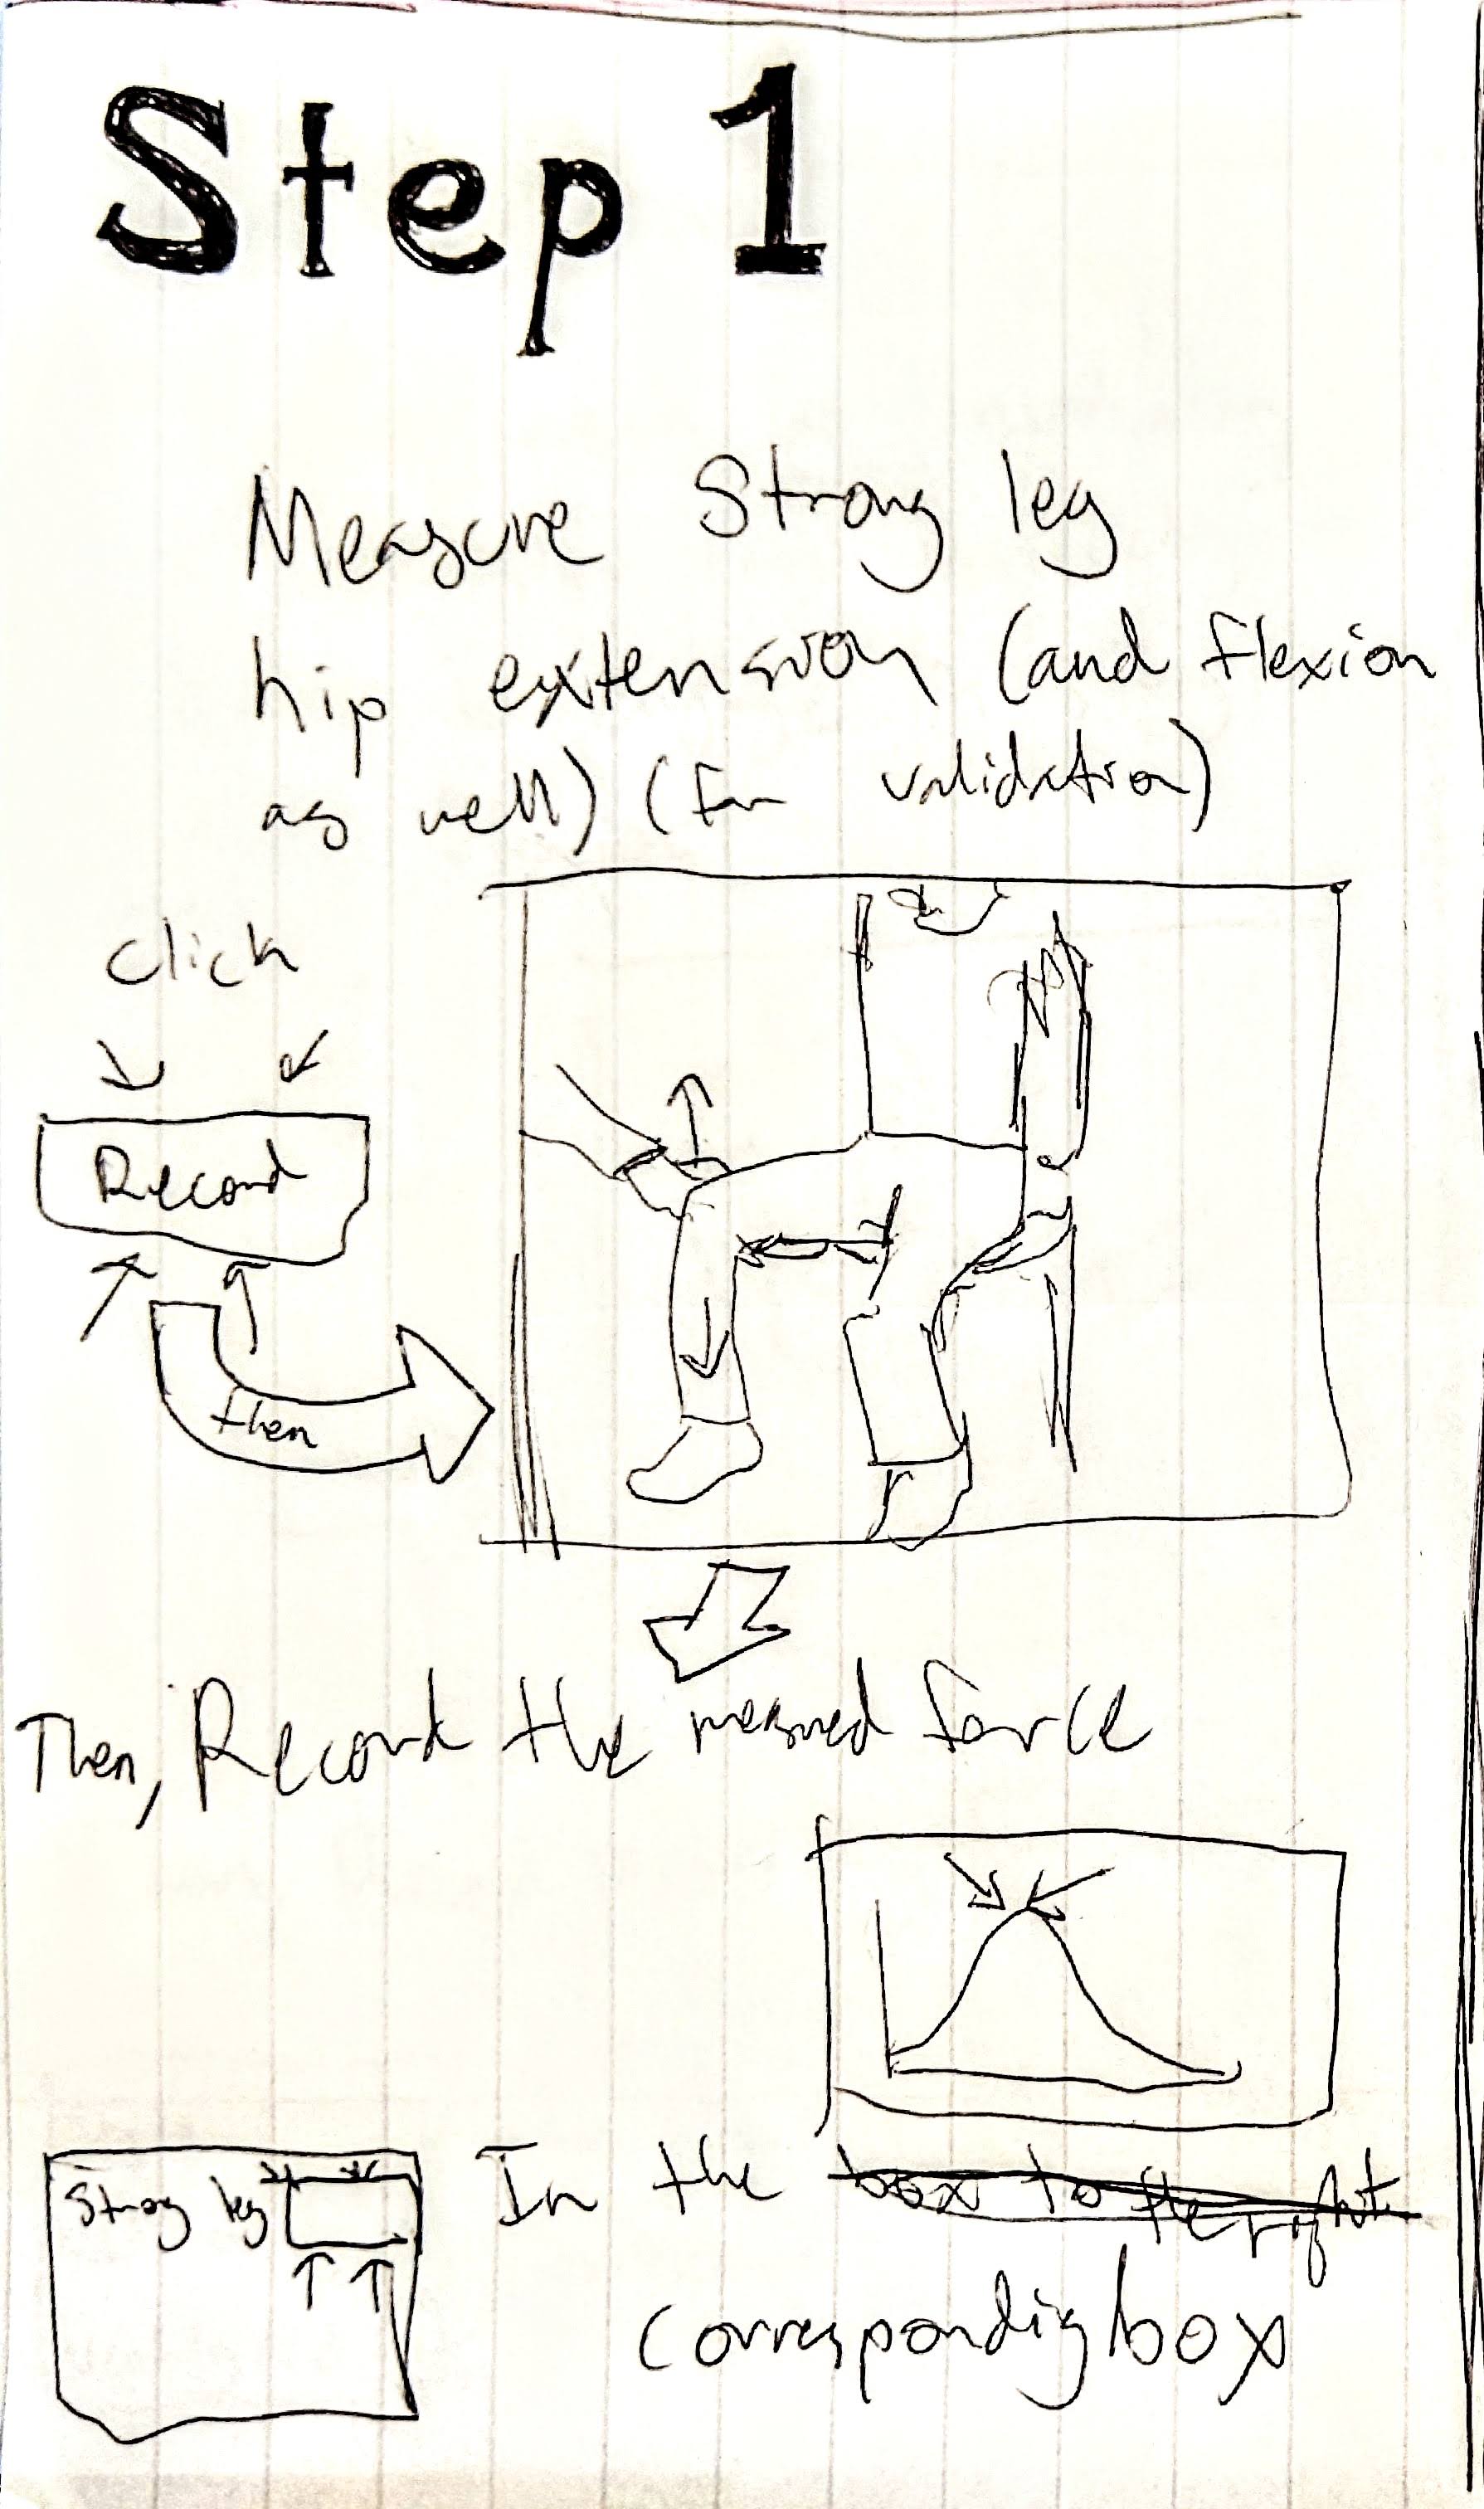 Step 1
Measure Strong leg
hip extension (and flexion
as well) (for validation)
Click
Record
then
Then, Record the measured force
Strong leg
In the box to the right
corresponding box